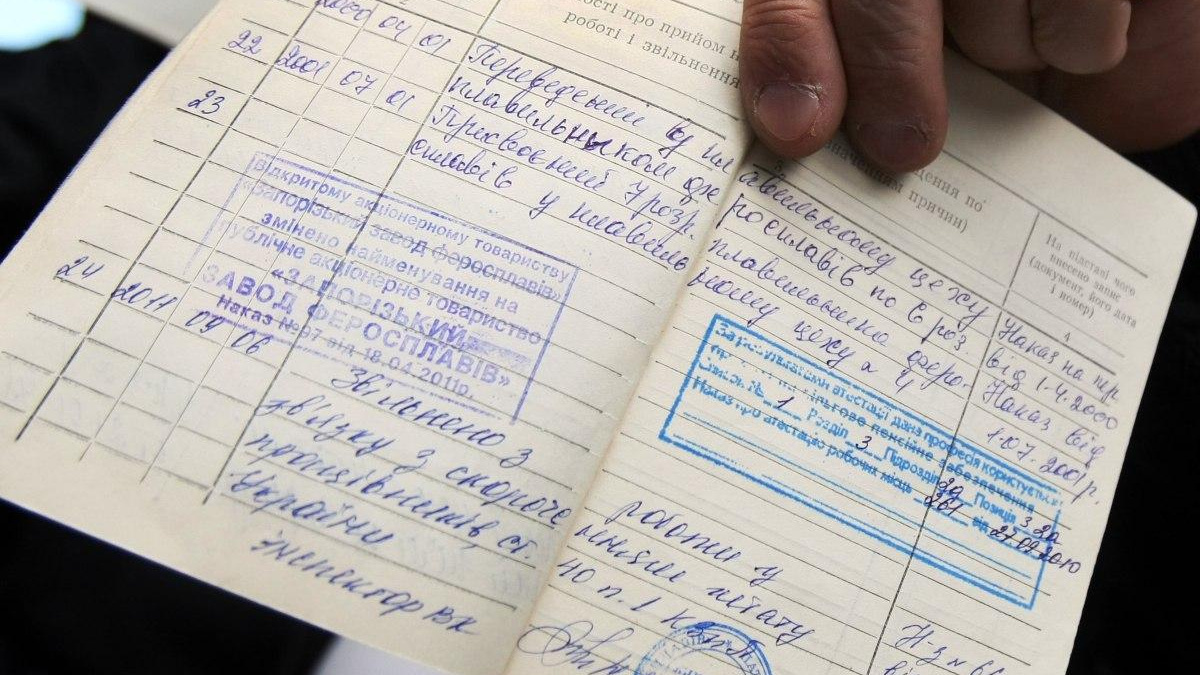 ості про прийом н
роботі і звільнення
ещення по
ням причин)
На підставі чого
внесено запис
(документ, його дата
і номер)
3
4
2000 04 01 Переведений у плавильному цеху
22
плавильником феросплавів по 6 роз.
Наказ на пр
від 1.4.2000
2001 07 01 Присвоєний 7 розр. плавильника феро-
23
сплавів у плавильному цеху № 4
Наказ від
1.07.2001р.
Відкритому акціонерному товариству
«Запорізький завод феросплавів»
змінено найменування на
публічне акціонерне товариство
«ЗАПОРІЗЬКИЙ
ЗАВОД ФЕРОСПЛАВІВ»
Наказ № 97 від 18.04.2011р.
За результатами атестації дана професія користується
пільгове пенсійне забезпечення
Список № 1 Розділ 3 Підрозділ 3а Позиція 3.2а
Наказ про атестацію робочих місць 261 від 27.09.2010
24 2011 09 06
Звільнено з роботи у
звязку з скороченням штату
працівників, ст. 40 п. 1 КЗпП
України
Інспектор ВК
Н-з №
від